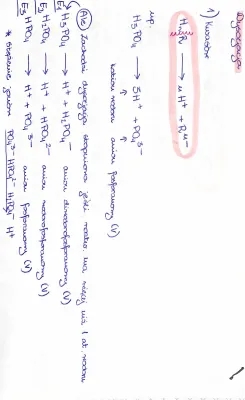 Dysocjacja
1) Kwasów
HₙR → n H⁺ + Rⁿ⁻
np
H₃PO₄ → 3H⁺ + PO₄³⁻
kation wodoru anion fosforanowy (V)
Ale Zachodzi dysocjacja stopniowa jeśli kwas ma więcej niż 1 at. wodoru
E1 H₃PO₄ → H⁺ + H₂PO₄⁻ anion diwodorofosforanowy (V)
E2 H₂PO₄⁻ → H⁺ + HPO₄²⁻ anion wodorofosforanowy (V)
E3 HPO₄²⁻ → H⁺ + PO₄³⁻ anion fosforanowy (V)
* stężenie jonów PO₄³⁻ HPO₄²⁻ H₂PO₄⁻ H⁺